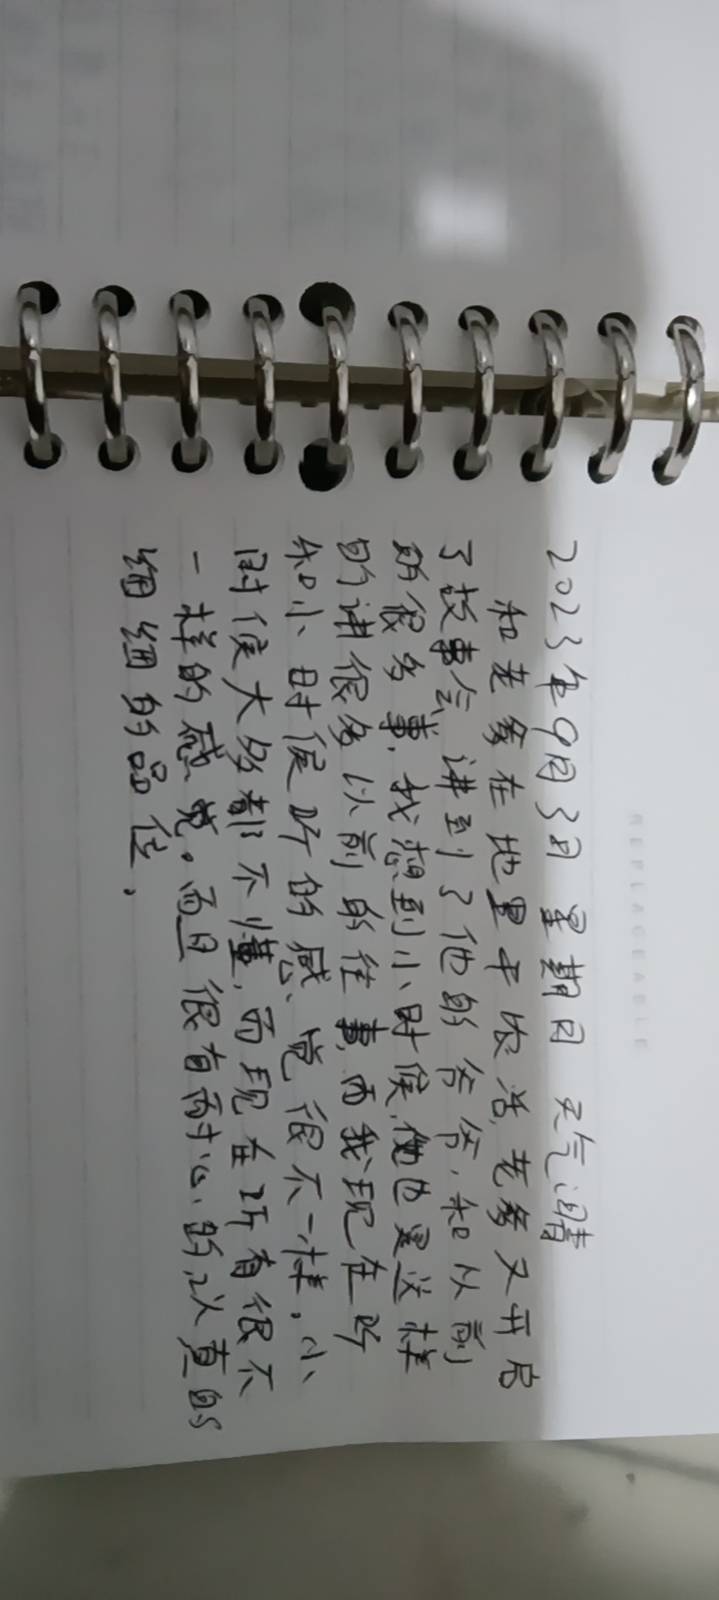 REPLACEABLE
2023年9月3日 星期日 天气晴
和老爹在地里干农活,老爹又开启
了故事会 讲到了他的爷爷,和以前
的很多事,我想到小时候,他也是这样
的讲很多以前的往事,而我现在听
和小时候听的感觉很不一样,小
时候大多都不懂,而现在听有很不
一样的感觉。而且很有耐心的,认真的
细细的品位,